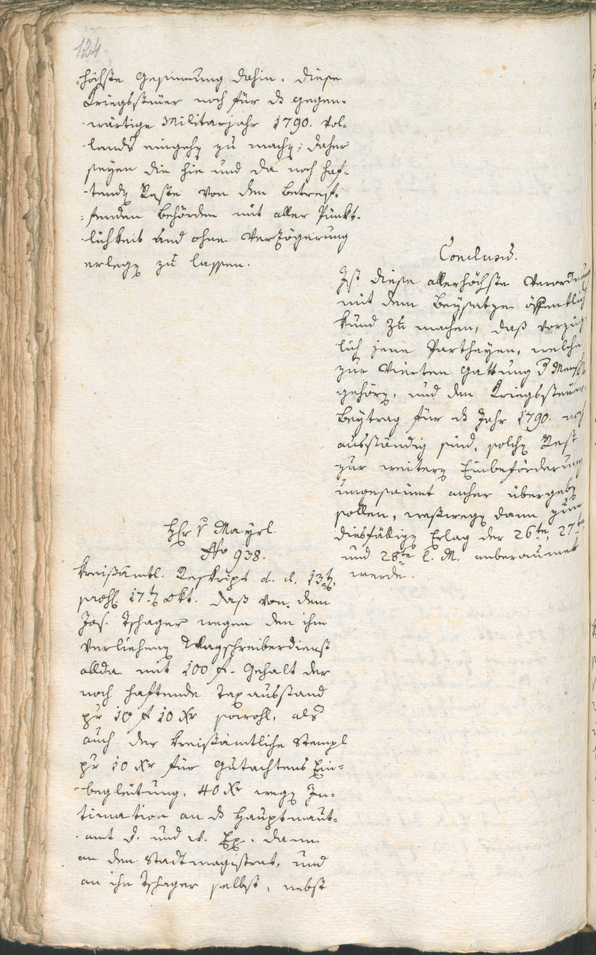 124
höchste Gesinnung dahin, diese
Kriegssteuer noch für ds gegen-
wärtige Militarjahr 1790. vol-
lends eingehen zu machen; daher
seyen die hie und da noch haf-
tenden Reste von den betref-
fenden Behörden mit aller Pünkt-
lichkeit und ohne Verzögerung
erlegen zu lassen.
Conclusum.
Ist diese allerhöchste Verordnung
mit dem Beysatze öffentlich
kund zu machen, daß vorzüg-
lich jene Partheyen, welche
zur vierten Gattung d Mensch
gehören, und den Kriegssteuer
Beytrag für ds Jahr 1790. noch
ausständig sind, solchen Rest
zur weitern Einbeförderung
ungesäumt anher übergeben
sollen, weßwegen dann zum
diesfälligen Erlag der 26te, 27te
und 28te d. M. anberaumet
werde.
Hr. v Mayrl.
No 938.
Kreißämtl. Reskript d. d. 13ten,
praes. 17ten Okt. daß von dem
Jos. Tschager wegen den ihm
verliehenen Wagschreiberdienst
allda mit 100 f. Gehalt der
noch haftende Tax ausstand
pr 10 f 10 Xr sowohl, als
auch der kreißämtliche Stempl
pr 10 Xr für Gutachtens Ein-
begleitung, 40 Xr wegen In-
timation an ds Hauptmaut-
amt d. und v. Ex. dann
an den Stadtmagistrat, und
an ihn Tschager selbst, nebst